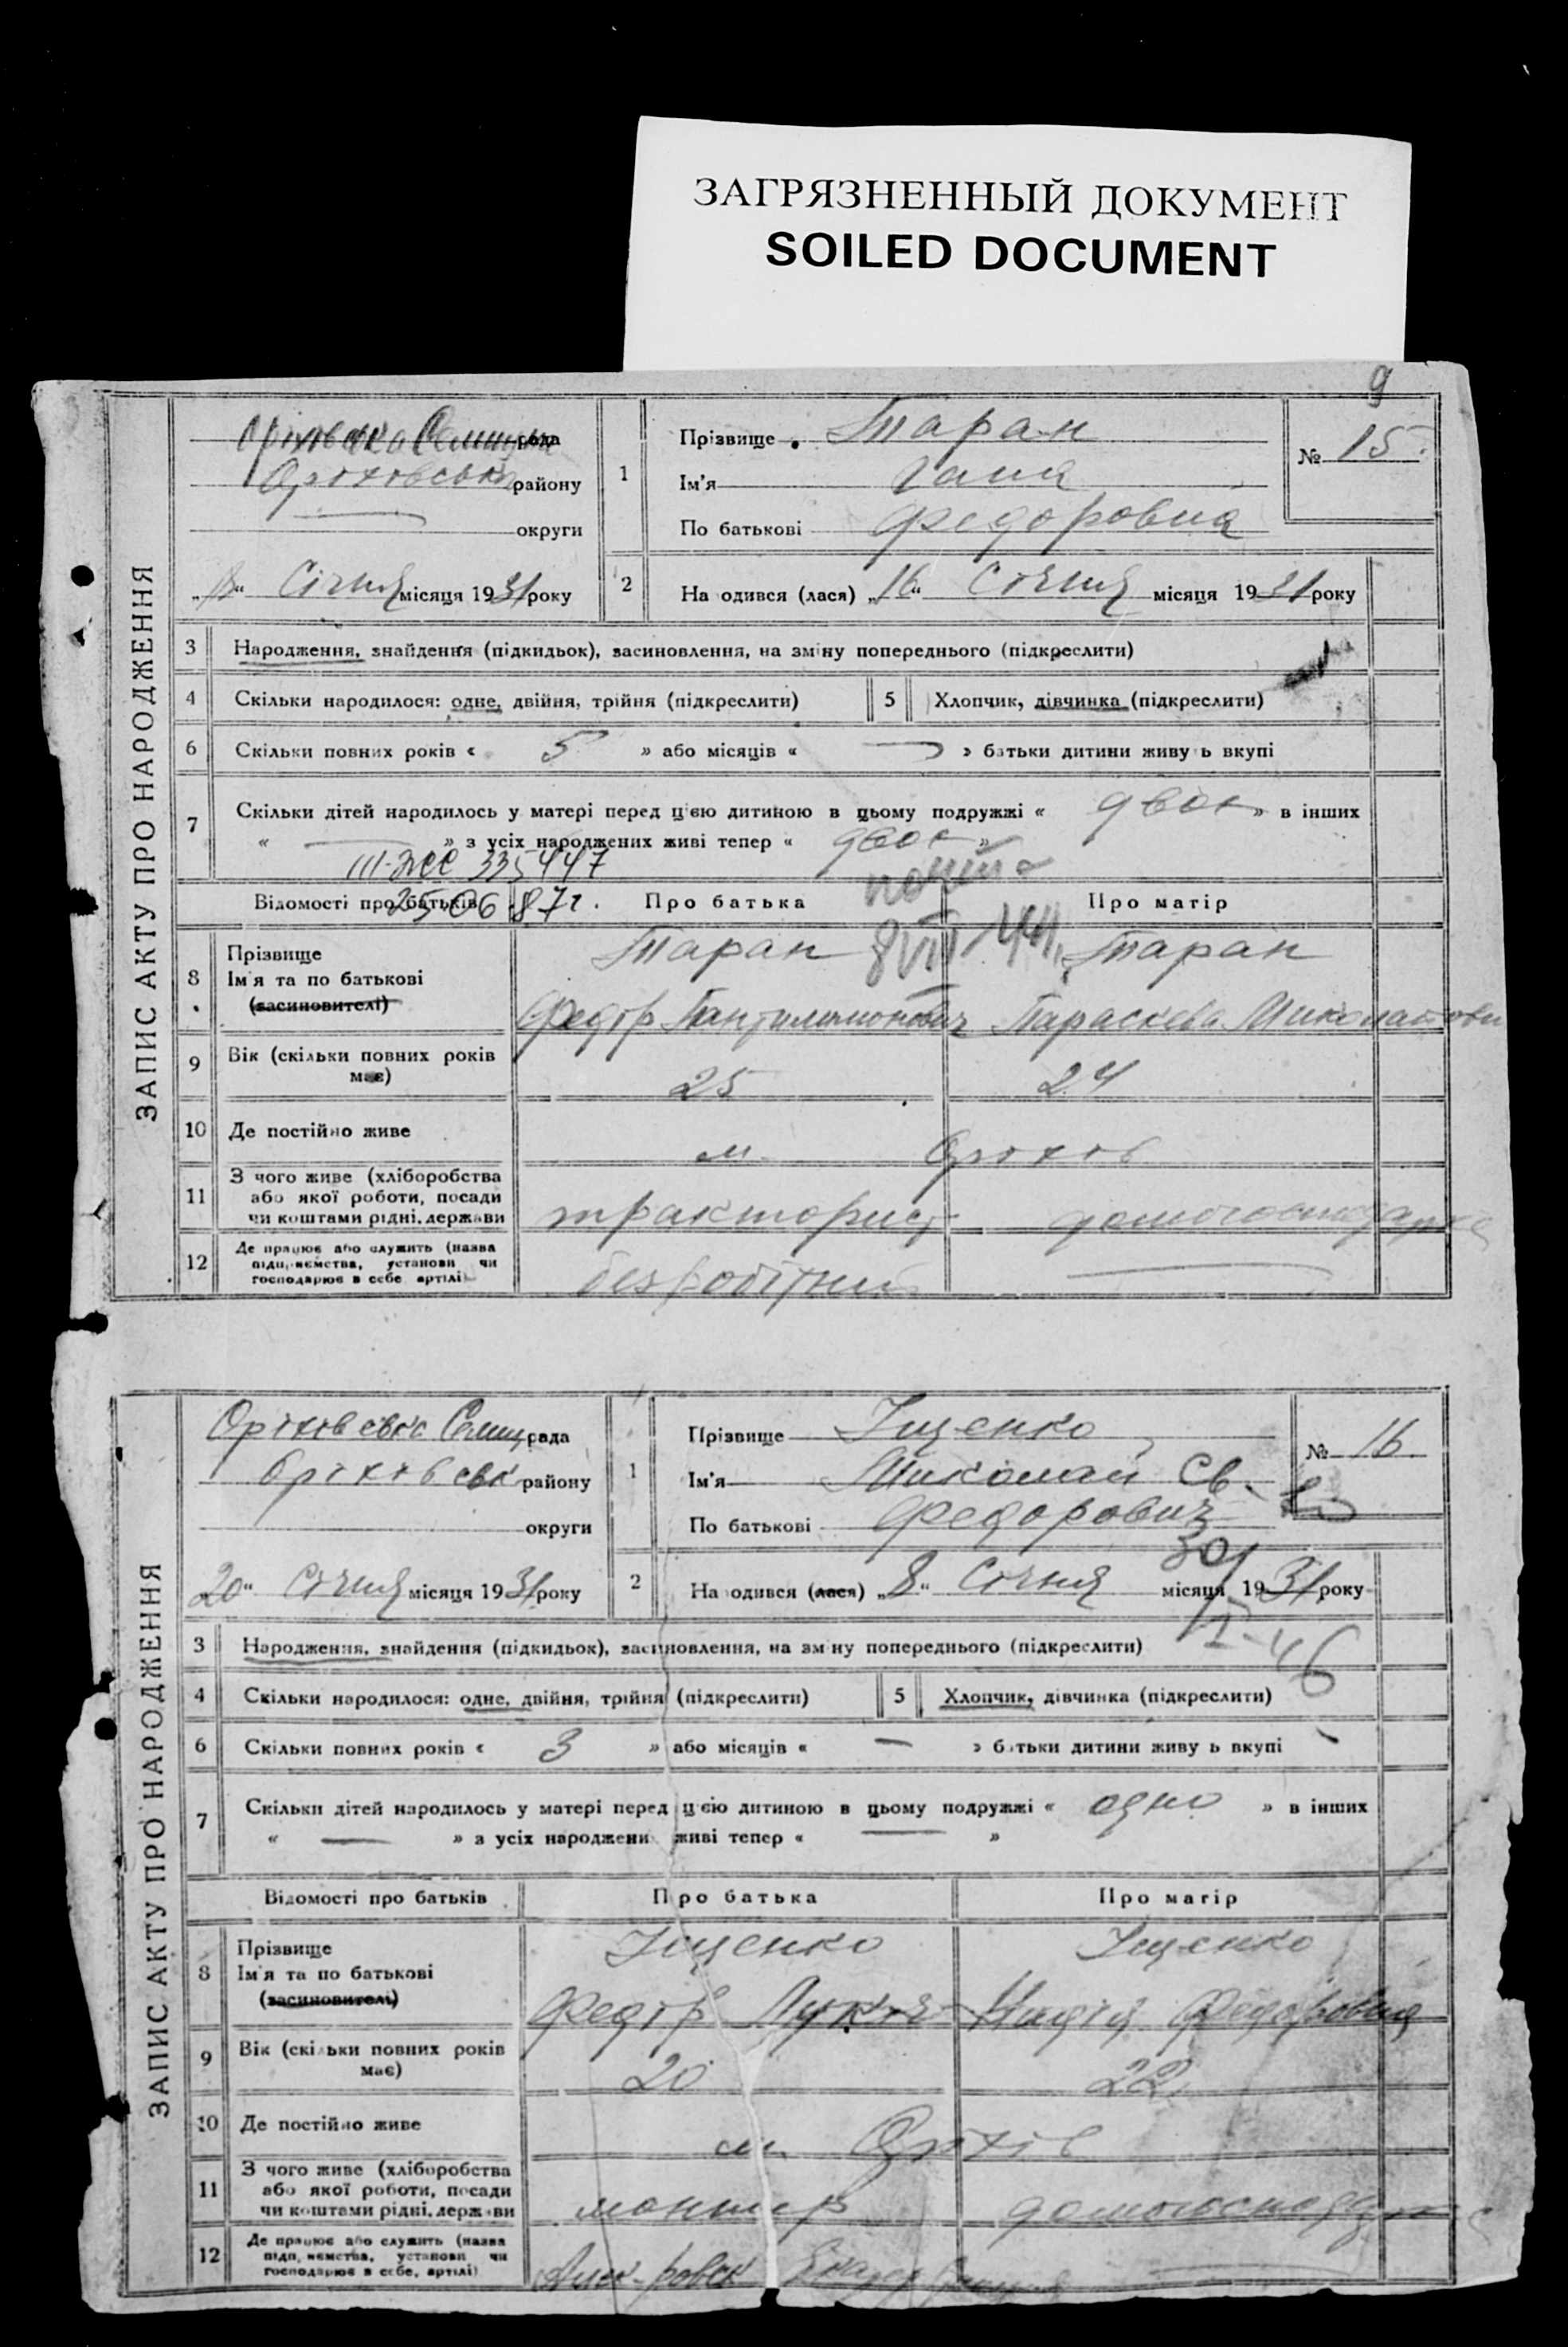 ЗАГРЯЗНЕННЫЙ ДОКУМЕНТ
SOILED DOCUMENT
9
ЗАПИС АКТУ ПРО НАРОДЖЕННЯ
рада
Оріховськ району
округи
„18“ Січня місяця 1931 року
1
Прізвище Таран
Ім'я Галя
По батькові Федоровна
№ 15.
2 На одився (лася) „16“ Січня місяця 1931 року
3 Народження, знайдення (підкидьок), засиновлення, на зміну попереднього (підкреслити)
4 Скільки народилося: одне, двійня, трійня (підкреслити) 5 Хлопчик, дівчинка (підкреслити)
6 Скільки повних років « 5 » або місяців « — » батьки дитини живу ь вкупі
7 Скільки дітей народилось у матері перед цією дитиною в цьому подружжі « двоє » в інших
« — » з усіх народжених живі тепер « двоє »
335447
25.06.87г.
Відомості про батьків Про батька Про матір
8VII-44
8 Прізвище
Ім'я та по батькові
(засиновителі)
Таран Таран
Федір Пантилимонович Параскева Миколаївн
9 Вік (скільки повних років має) 25 24
10 Де постійно живе м. Оріхов
11 З чого живе (хліборобства
або якої роботи, посади
чи коштами рідні, держави
тракторист домогосподарка
12 Де працює або служить (назва
підприємства, установи чи
господарює в себе артілі)
безробітний —
ЗАПИС АКТУ ПРО НАРОДЖЕННЯ
Оріхівськ Селищ рада
Оріхівськ району
округи
20“ Січня місяця 1931 року
1
Прізвище Іщенко
Ім'я Миколай Св.
По батькові Федорович
№ 16
2 На одився (лася) „8“ Січня місяця 1931 року
30/
I-46
3 Народження, знайдення (підкидьок), засиновлення, на зміну попереднього (підкреслити)
4 Скільки народилося: одне, двійня, трійня (підкреслити) 5 Хлопчик, дівчинка (підкреслити)
6 Скільки повних років « 3 » або місяців « — » батьки дитини живу ь вкупі
7 Скільки дітей народилось у матері перед цією дитиною в цьому подружжі « одно » в інших
« — » з усіх народжени живі тепер « — »
Відомості про батьків Про батька Про матір
8 Прізвище
Ім'я та по батькові
(засиновителі)
Іщенко Іщенко
Федір Лукич Надія Федоровна
9 Вік (скільки повних років має) 20 22
10 Де постійно живе м. Оріхів
11 З чого живе (хліборобства
або якої роботи, посади
чи коштами рідні, держави
монтер домогосподарка
12 Де працює або служить (назва
підприємства, установи чи
господарює в себе, артілі)